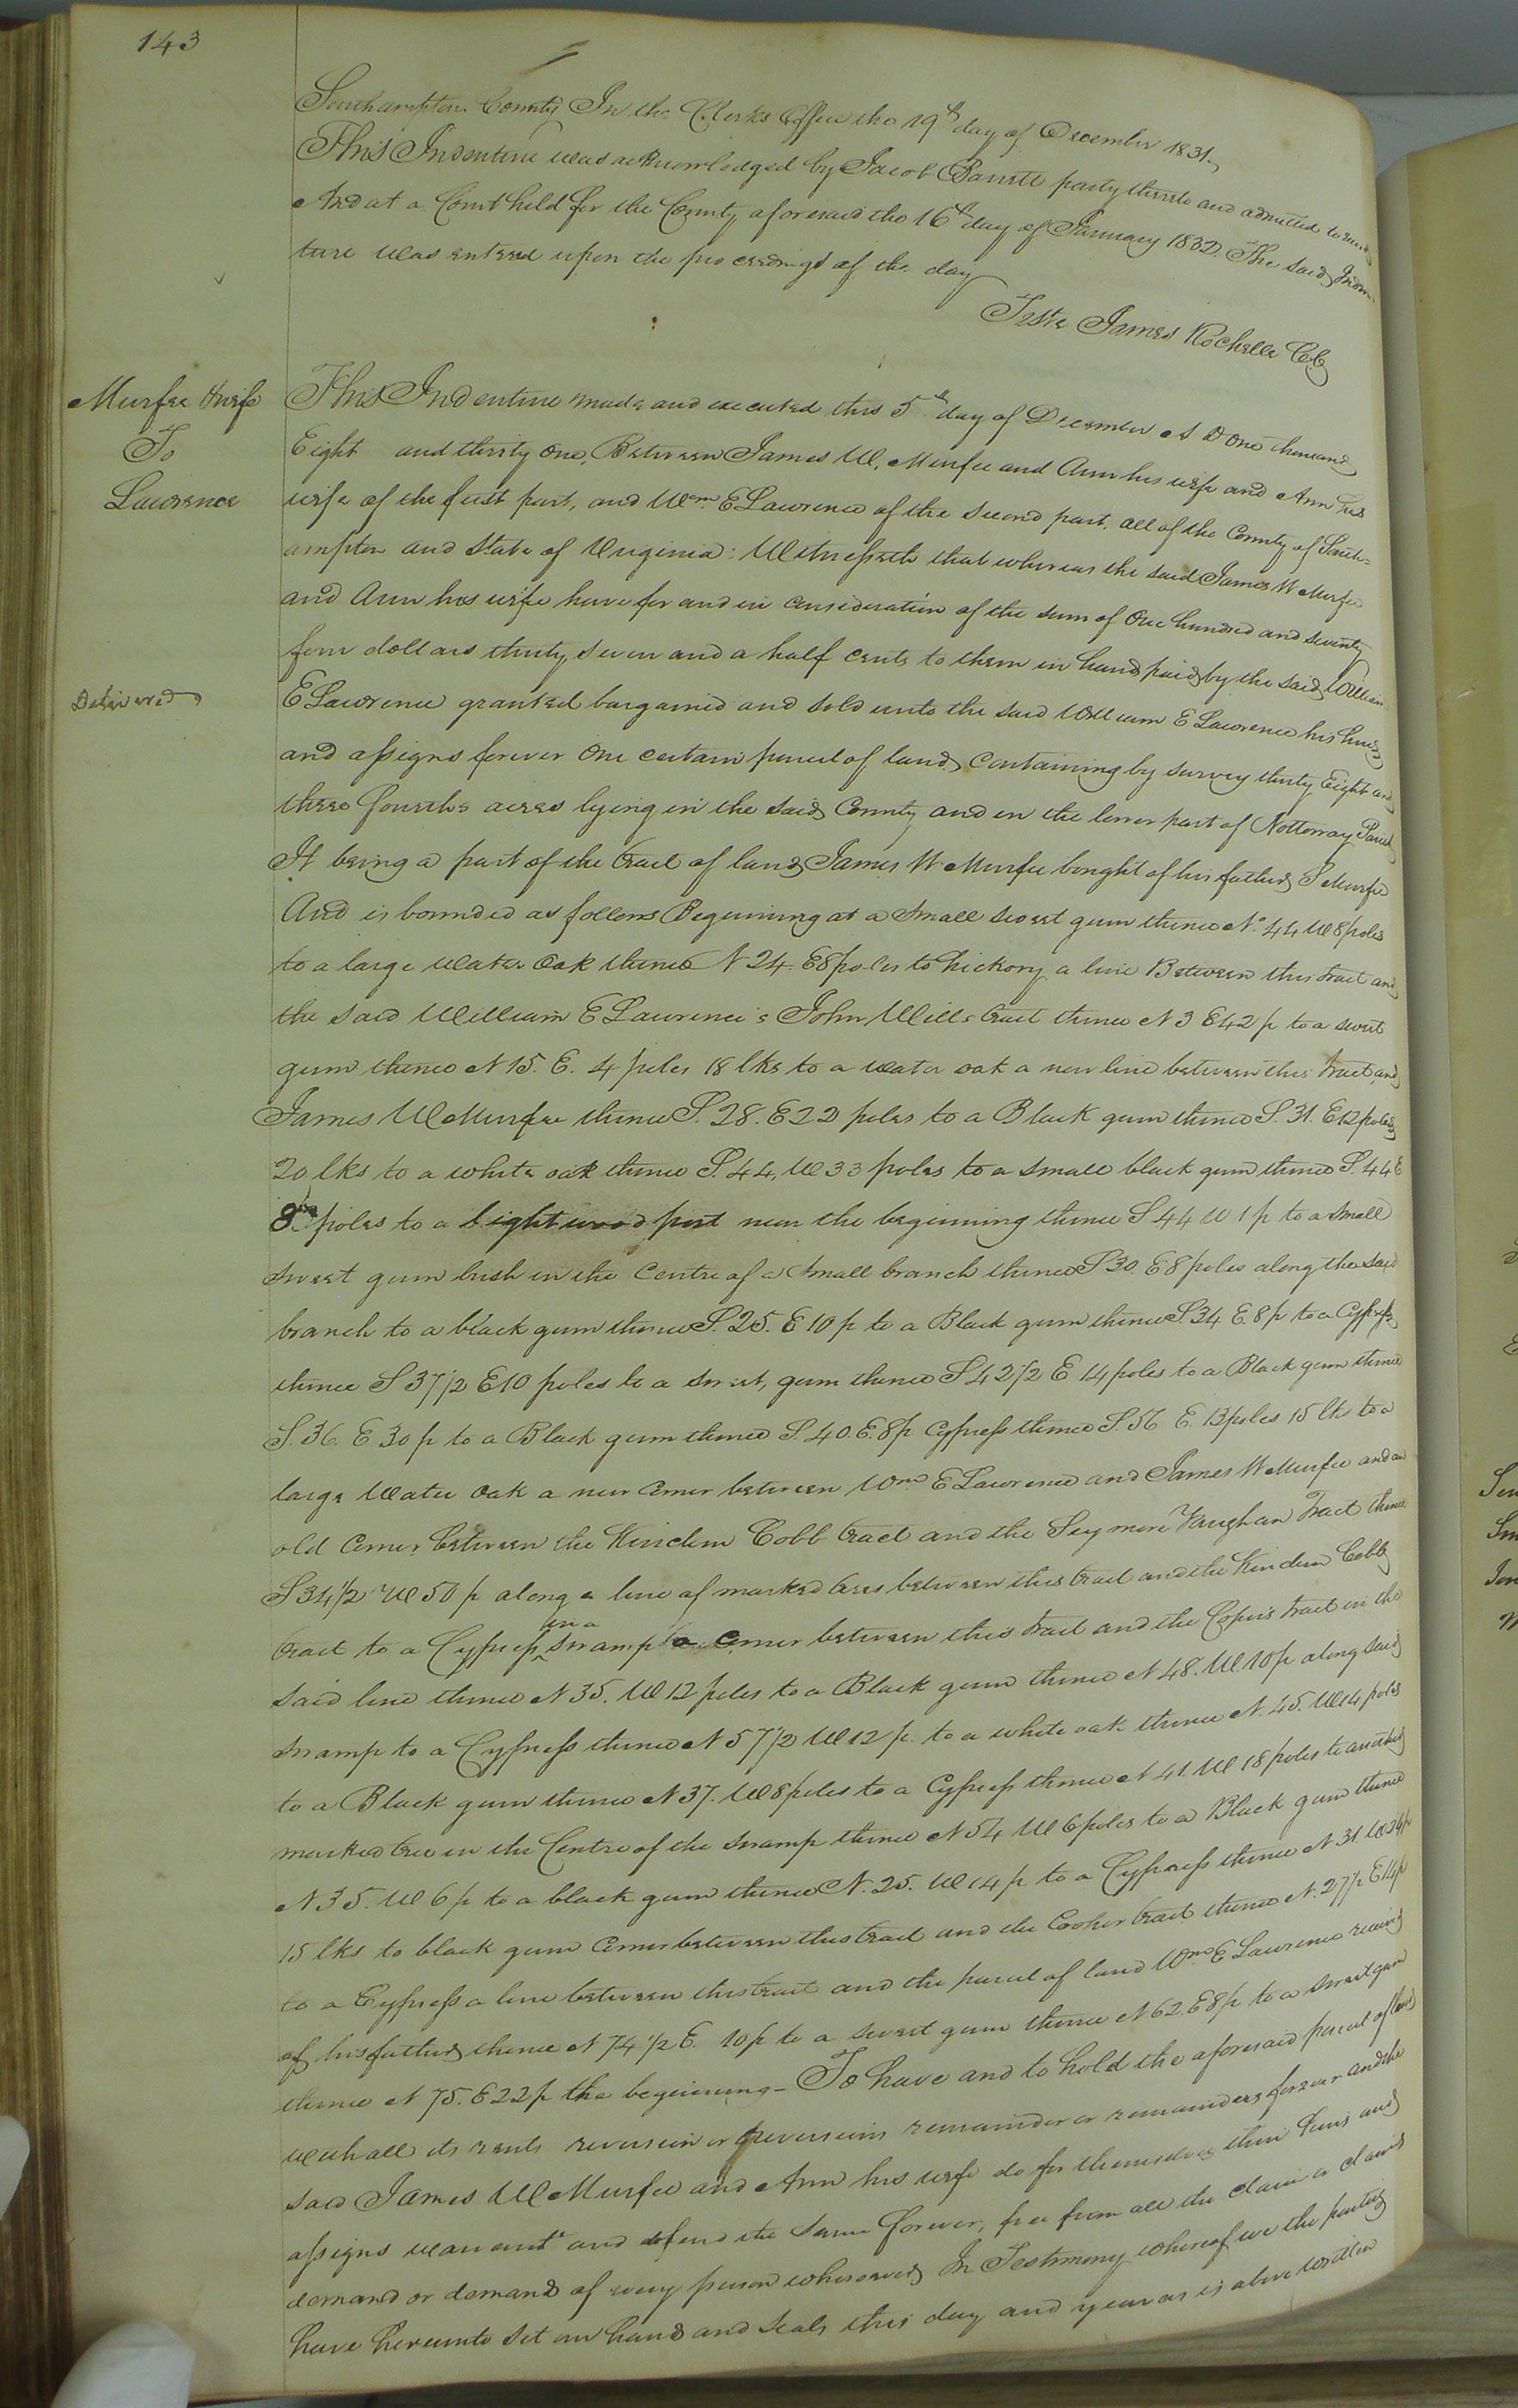 143
Southampton County In the Clerks Office the 19th day of December 1831.
This Indenture was acknowledged by Jacob Barrett party thereto and admitted to record
And at a Court held for the County aforesaid the 16th day of January 1832. The said Inden-
ture was entered upon the proceedings of the day
Teste James Rochelle CC
Murfee & wife
To
Lawrence
Delivered
This Indenture made and executed this 5th day of December A D one thousand
Eight and thirty one, Between James W. Murfee and Ann his wife and Ann his
wife of the first part, and Wm. E Lawrence of the second part, all of the County of South-
ampton and State of Virginia: Witnesseth that whereas the said James W Murfee
and Ann his wife have for and in consideration of the sum of One hundred and seventy
four dollars thirty seven and a half cents to them in hand paid by the said William
E Lawrence granted bargained and sold unto the said William E Lawrence his heirs
and assigns forever One certain parcel of land containing by survey thirty Eight and
three fourths acres lying in the said County and in the lower part of Nottoway Parish
It being a part of the tract of land James W Murfee bought of his father S Murfee
And is bounded as follows Beginning at a small sweet gum thence No. 44 W 8 poles
to a large water Oak thence N 24. E 8 poles to hickory a line Between this tract and
the said William E Lawrence's John Wills tract thence N 3 E 42 p to a sweet
gum thence N 15. E. 4 poles 18 lks to a water oak a new line between this tract and
James W Murfee thence S. 28. E 22 poles to a Black gum thence S. 31. E 12 poles
20 lks to a white oak thence S. 44, W 33 poles to a small black gum thence S. 44 E
8 poles to a lightwood post near the beginning thence S 44 W 1 p to a small
sweet gum bush in the Centre of a small branch thence S 30 E 8 poles along the said
branch to a black gum thence S. 25. E 10 p to a Black gum thence S. 34 E. 8 p to a Cypress
thence S 37 1/2 E 10 poles to a sweet, gum thence S 42 1/2 E 14 poles to a Black gum thence
S. 36. E 30 p to a Black gum thence S. 40. E. 8 p Cypress thence S. 56 E. 13 poles 15 lks to a
large Water Oak a new Corner between Wm E Lawrence and James W Murfee and an
old Corner between the Kinchen Cobb tract and the Seymore Vaughan Tract thence
S 34 1/2 W 50 p along a line of marked trees between this tract and the Kinchen Cobb
tract to a Cypress in a swamp a corner between this tract and the tract in the
said line thence N 35. W 12 poles to a Black gum thence N 48. W. 10 p along said
swamp to a Cypress thence N 57 1/2 W 12 p. to a white oak thence N. 45. W 14 poles
to a Black gum thence N 37. W 8 poles to a Cypress thence N 41. W 18 poles to another
marked tree in the Centre of the swamp thence N 54 W 6 poles to a Black gum thence
N 35. W 6 p to a black gum thence N. 25. W 14 p to a Cypress thence N 31. W 24 p
15 lks to black gum Corner between this tract and the tract thence N. 27 1/2 E 14 p
to a Cypress a line between this tract and the parcel of land Wm E Lawrence received
of his father thence N 74 1/2 E. 10 p to a sweet gum thence N 62. E 8 p to a sweet gum
thence N 75. E 22 p the beginning - To have and to hold the aforesaid parcel of land
with all its rents reversion or reversions remainder or remainders forever and the
said James W Murfee and Ann his wife do for themselves their heirs and
assigns warrant and defend the same forever, free from all the claim or claims
demand or demands of every person whosoever In Testimony whereof we the parties
have hereunto set our hands and seals this day and year as is above written